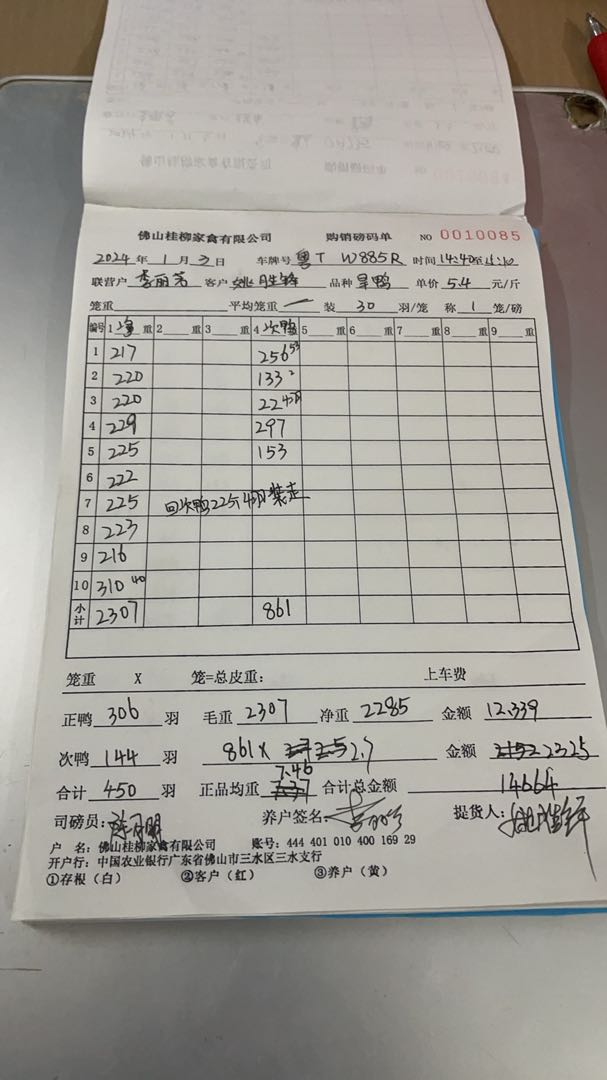 佛山桂柳家禽有限公司 购销磅码单 NO 0010085
2024年1月3日 车牌号 粤T W885R 时间 14:40至
联营户 李丽芳 客户 姚胜锋 品种 旱鸭 单价 5.4 元/斤
笼重 平均笼重 一 装 30 羽/笼 称 1 笼/磅
编号 1 净 重 2 重 3 重 4 次鸭 5 重 6 重 7 重 8 重 9 重
1 217 256 53
2 220 133 2
3 220 22
4 229 297
5 225 153
6 222
7 225 回次鸭22斤4羽装走
8 223
9 216
10 310 40
小计 2307 861
笼重 X 笼=总皮重: 上车费
正鸭 306 羽 毛重 2307 净重 2285 金额 12.339
次鸭 144 羽 861X 2.7 金额 2325
7.46
合计 450 羽 正品均重 合计总金额 14664
司磅员: 养户签名: 提货人:
户 名: 佛山桂柳家禽有限公司 账号: 444 401 010 400 169 29
开户行: 中国农业银行广东省佛山市三水区三水支行
①存根(白) ②客户(红) ③养户(黄)